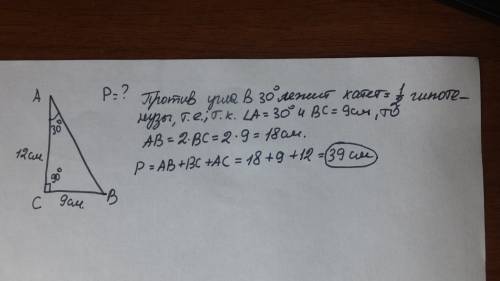 A
P=?
Против угла в 30° лежит катет = 1/2 гипоте-
нузы, т.е., т.к. ∠A = 30° и BC = 9см, то
AB = 2·BC = 2·9 = 18см.
P = AB + BC + AC = 18 + 9 + 12 = 39 см
30°
12см
90°
C
9см
B